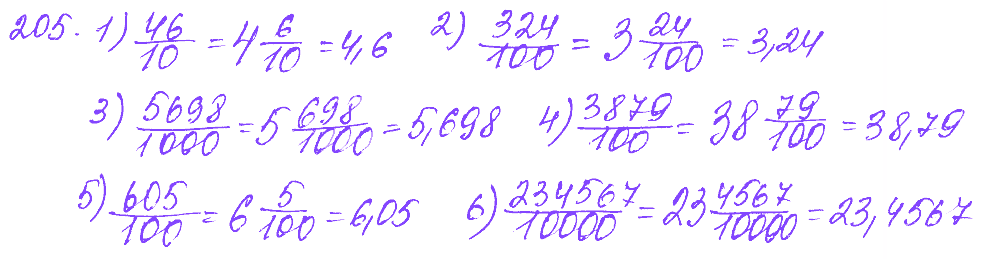 205. 1) 46/10 = 4 6/10 = 4,6 2) 324/100 = 3 24/100 = 3,24
3) 5698/1000 = 5 698/1000 = 5,698 4) 3879/100 = 38 79/100 = 38,79
5) 605/100 = 6 5/100 = 6,05 6) 234567/10000 = 23 4567/10000 = 23,4567